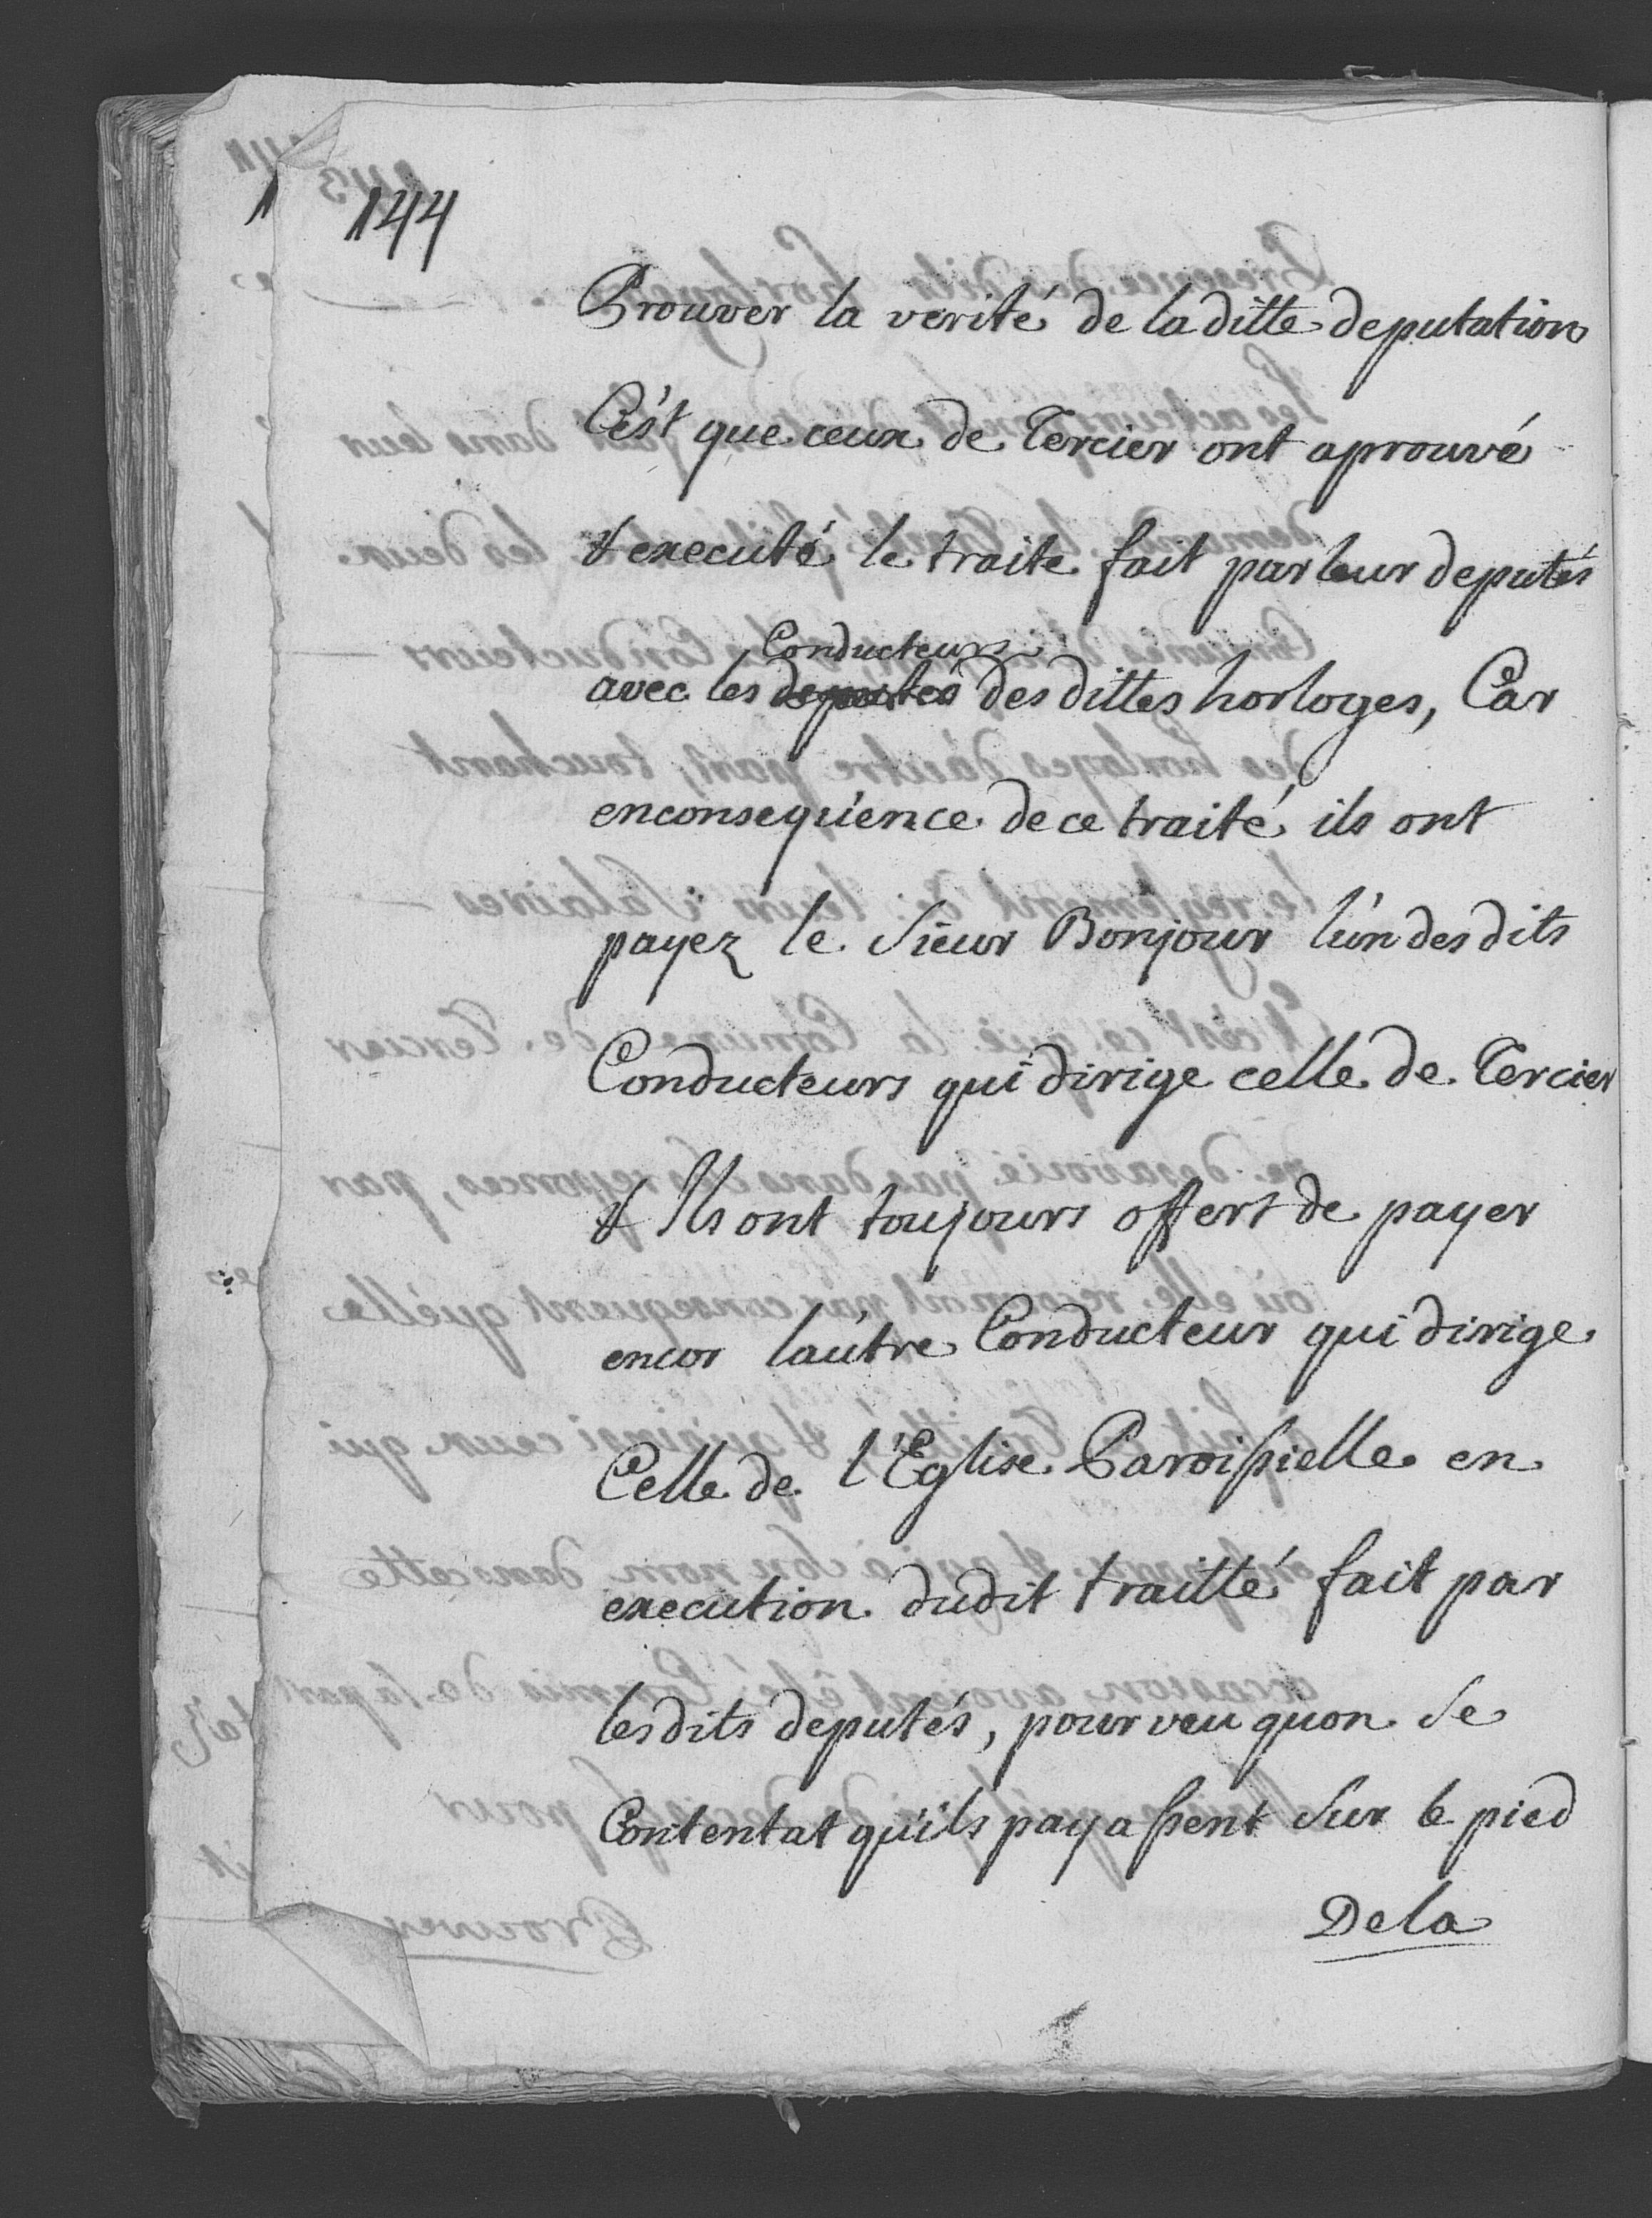 144
Prouver la verité de laditte deputation
C'est que ceux de Tercier ont aprouvé
& executé le traite fait par leur deputés
Conducteurs
avec les deputés des dittes horloges, Car
enconsequence de ce traité ils ont
payez le Sieur Bonjour l'un desdits
Conducteurs qui dirige celle de Tercier
& Ils ont toujours offert de payer
encor l'autre Conducteur qui dirige
Celle de l'Eglise Paroissielle en
execution dudit traitté fait par
lesdits deputés, pourveu quon Se
Contentat qu'ils payassent Sur le pied
De la